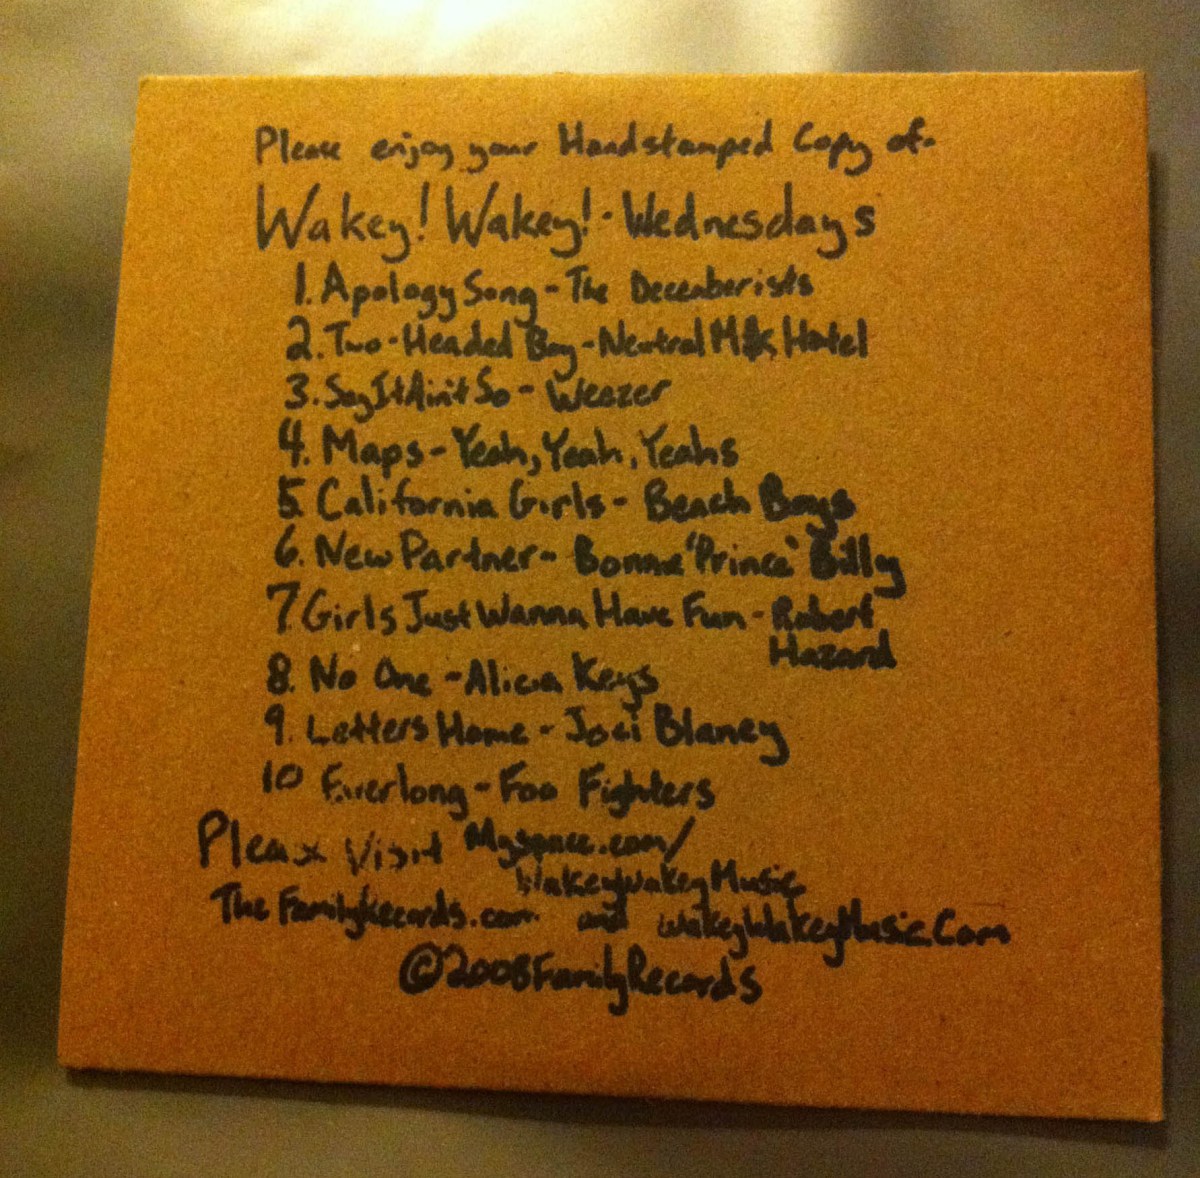 Please enjoy your Handstamped Copy of-
Wakey! Wakey! - Wednesdays
1. Apology Song - The Decemberists
2. Two-Headed Boy - Neutral Milk Hotel
3. Say It Ain't So - Weezer
4. Maps - Yeah, Yeah, Yeahs
5. California Girls - Beach Boys
6. New Partner - Bonnie 'Prince' Billy
7. Girls Just Wanna Have Fun - Robert
Hazard
8. No One - Alicia Keys
9. Letters Home - Joei Blaney
10 Everlong - Foo Fighters
Please Visit Myspace.com/
WakeyWakeyMusic
TheFamilyRecords.com and WakeyWakeyMusic.Com
©2008FamilyRecords